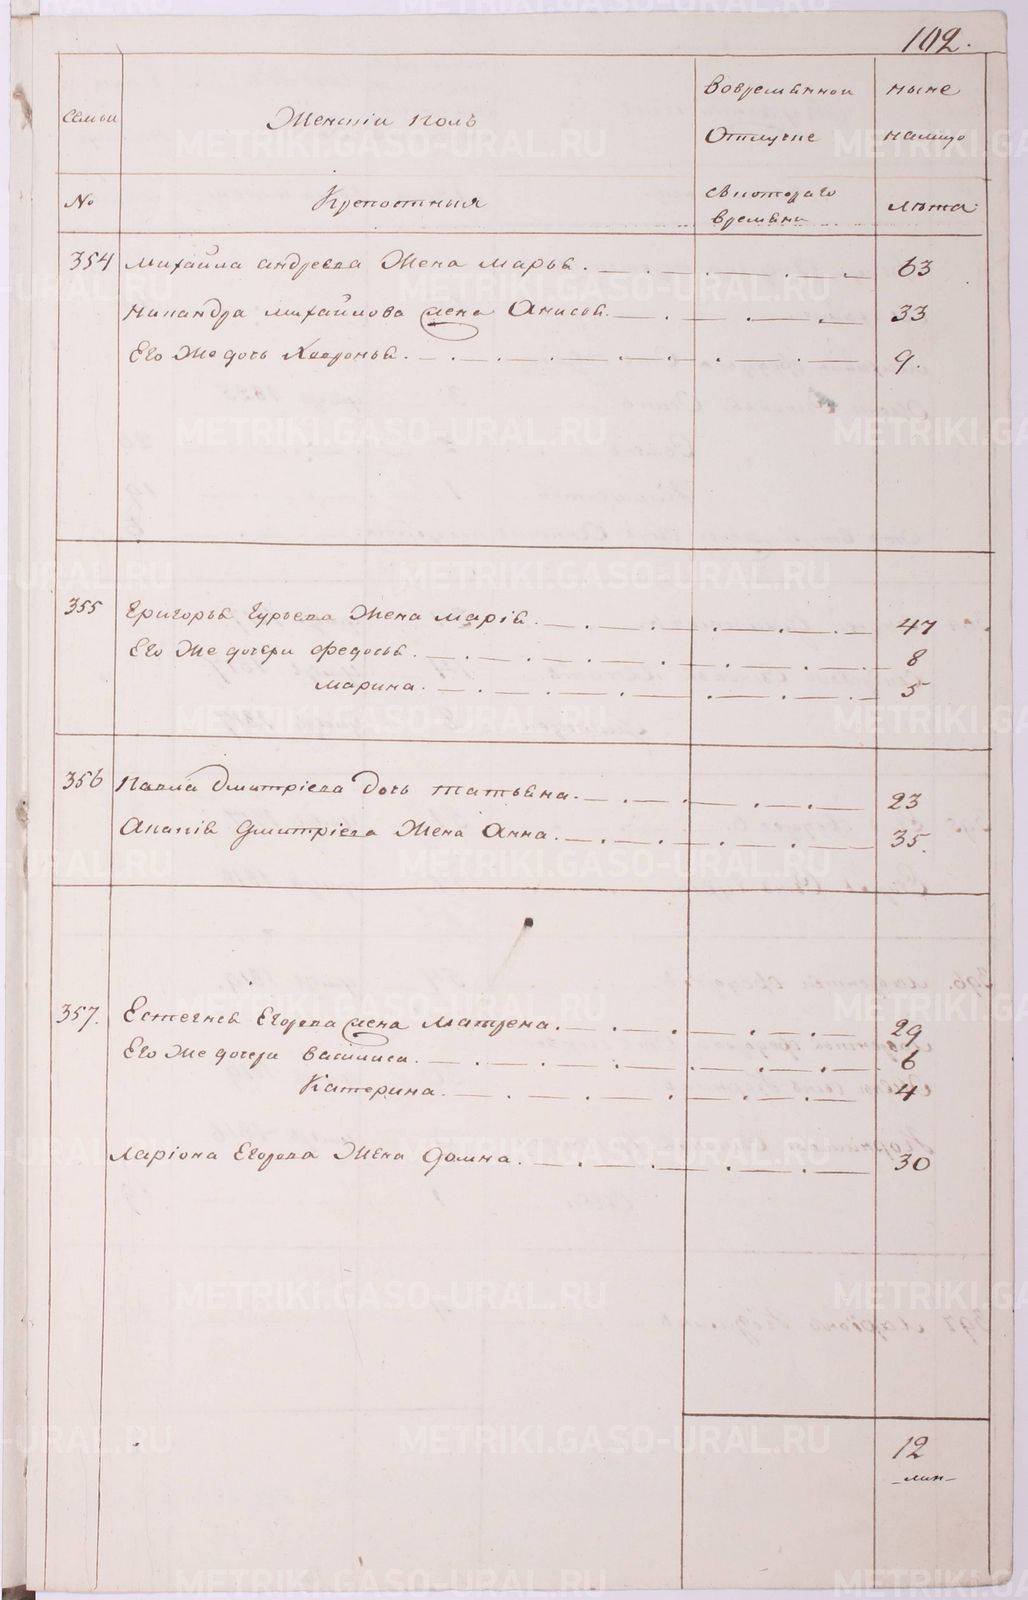 102.
семьи Женскiи полъ вовремѣннои ныне
Отлучке налицо
№ Крепостныя съкотораго лѣта
времѣни
354 Михайла андреева Жена марья. 63
никандра михайлова жена Анисья. 33
Его Же дочь Хавронья. 9.
355 Григорья Гурьева Жена марiя. 47
Его Же дочери Федосья. 8
марина. 5
356 Павла Дмитрiева Дочь татьяна. 23
Ананiя Дмитрiева Жена Анна. 35.
357. Естегнея Егорева жена матрена. 29
Его Же дочери василиса. 6
Катерина. 4
Ларiона Егорева Жена домна. 30
12
METRIKI.GASO-URAL.RU